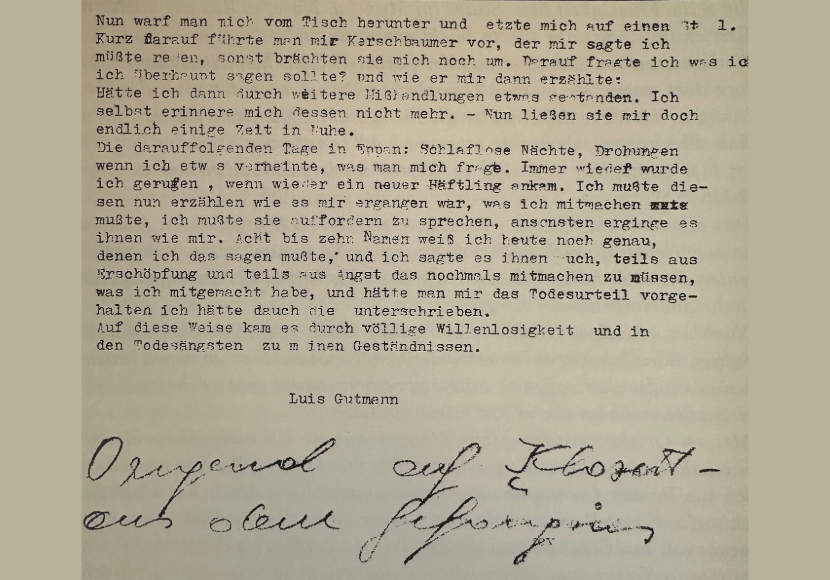 Nun warf man mich vom Tisch herunter und etzte mich auf einen St l.
Kurz darauf führte man mir Kerschbaumer vor, der mir sagte ich
müßte re en, sonst brächten sie mich noch um. Darauf fragte ich was ic
ich überhaupt sagen sollte? und wie er mir dann erzählte:
Hätte ich dann durch weitere Mißhandlungen etwas gestanden. Ich
selbst erinnere mich dessen nicht mehr. - Nun ließen sie mir doch
endlich einige Zeit in Ruhe.
Die darauffolgenden Tage in Eppan: Schlaflose Nächte, Drohungen
wenn ich etw s verneinte, was man mich fragte. Immer wieder wurde
ich gerufen , wenn wieder ein neuer Häftling ankam. Ich mußte die-
sen nun erzählen wie es mir ergangen war, was ich mitmachen
mußte, ich mußte sie auffordern zu sprechen, ansonsten erginge es
ihnen wie mir. Acht bis zehn Namen weiß ich heute noch genau,
denen ich das sagen mußte, und ich sagte es ihnen uch, teils aus
Erschöpfung und teils aus Angst das nochmals mitmachen zu müssen,
was ich mitgemacht habe, und hätte man mir das Todesurteil vorge-
halten ich hätte dauch die unterschrieben.
Auf diese Weise kam es durch völlige Willenlosigkeit und in
den Todesängsten zu m inen Geständnissen.
Luis Gutmann
Original auf Klosett-
aus dem Gefängnis